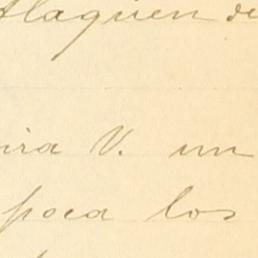 Alaquen de
ira V. un
poca los